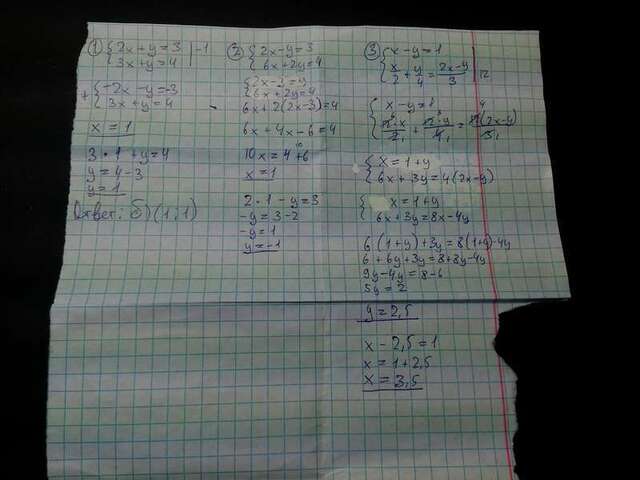 ① { 2x + y = 3 | -1
{ 3x + y = 4
+ { -2x - y = -3
{ 3x + y = 4
x = 1
3 · 1 + y = 4
y = 4 - 3
y = 1
Ответ: б) (1 ; 1)
② { 2x - y = 3
{ 6x + 2y = 4
{ 2x - 3 = y
{ 6x + 2y = 4
6x + 2(2x - 3) = 4
6x + 4x - 6 = 4
10x = 4 + 6
x = 1
2 · 1 - y = 3
-y = 3 - 2
-y = 1
y = -1
③ { x - y = 1
{ x/2 + y/4 = (2x - y)/3 | 12
{ x - y = 1
{ x = 1 + y
{ 6x + 3y = 4(2x - y)
{ x = 1 + y
6x + 3y = 8x - 4y
6(1 + y) + 3y = 8(1 + y) - 4y
6 + 6y + 3y = 8 + 8y - 4y
9y - 4y = 8 - 6
5y = 2
y = 2,5
x - 2,5 = 1
x = 1 + 2,5
x = 3,5